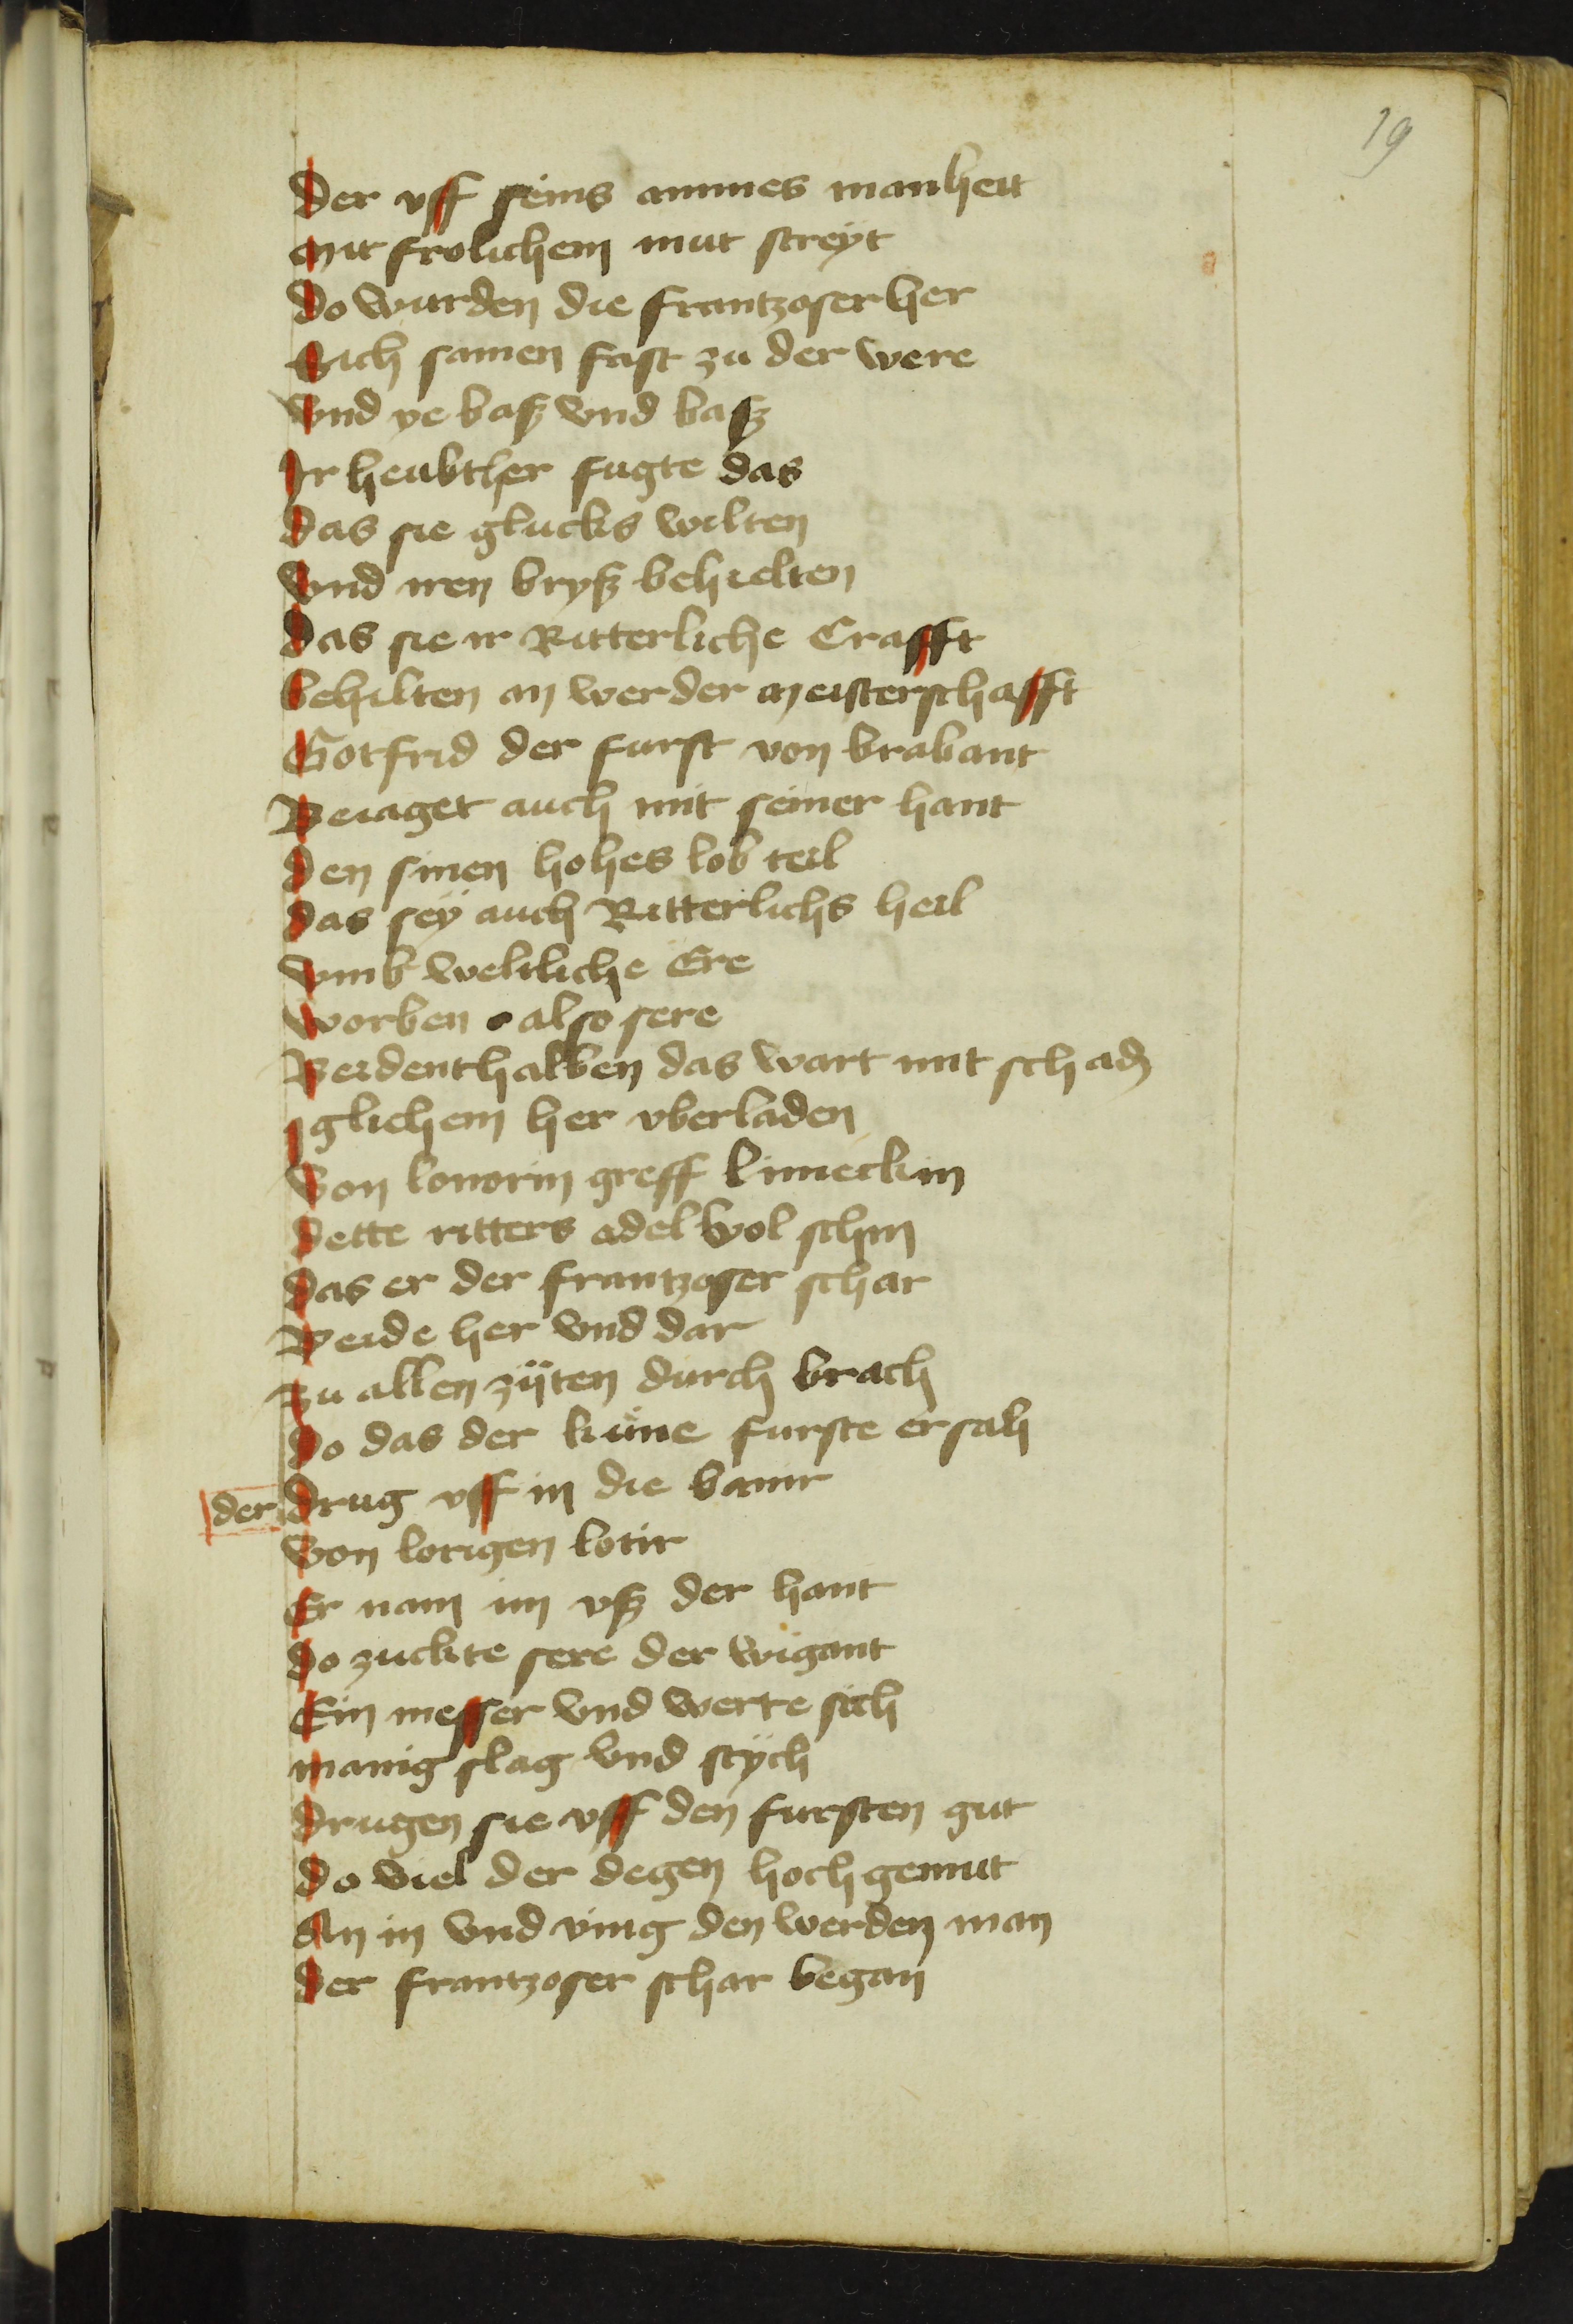 19
Der vff seins ammes manheit
Mit frolichem mut streÿt
Do wurden die frantzoser her
Sich samen fast zu der were
Vnd ye baß vnd baß
Ir heubther fugte das
Das sie glucks wilten
Vnd iren bryß behielten
Das sie ir Ritterliche Crafft
behilten an werder meisterschafft
Gotfrid der furst von brabant
Beiaget auch mit seiner hant
Den sinen hohes lob teil
Das seÿ auch Ritterlichs heil
Vmb weltliche Ere
Worben also sere
Beidenthalben das wart mit schadn
Iglichem her vberladen
Von lonorin greff limeckin
Dette ritters adel wol schin
Das er der frantzoser schar
Beide her vnd dar
Zu allen zÿten durch brach
Do das der kune furste ersah
der Drug vff in die banir
Von lorigen lotir
Er nam im vß der hant
Do zuckte sere der wigant
Ein messer vnd werte sich
Manig slag vnd stÿch
Drugen sie vff den fursten gut
Do viel der degen hochgemut
An in vnd ving den werden man
Der frantzoser schar began